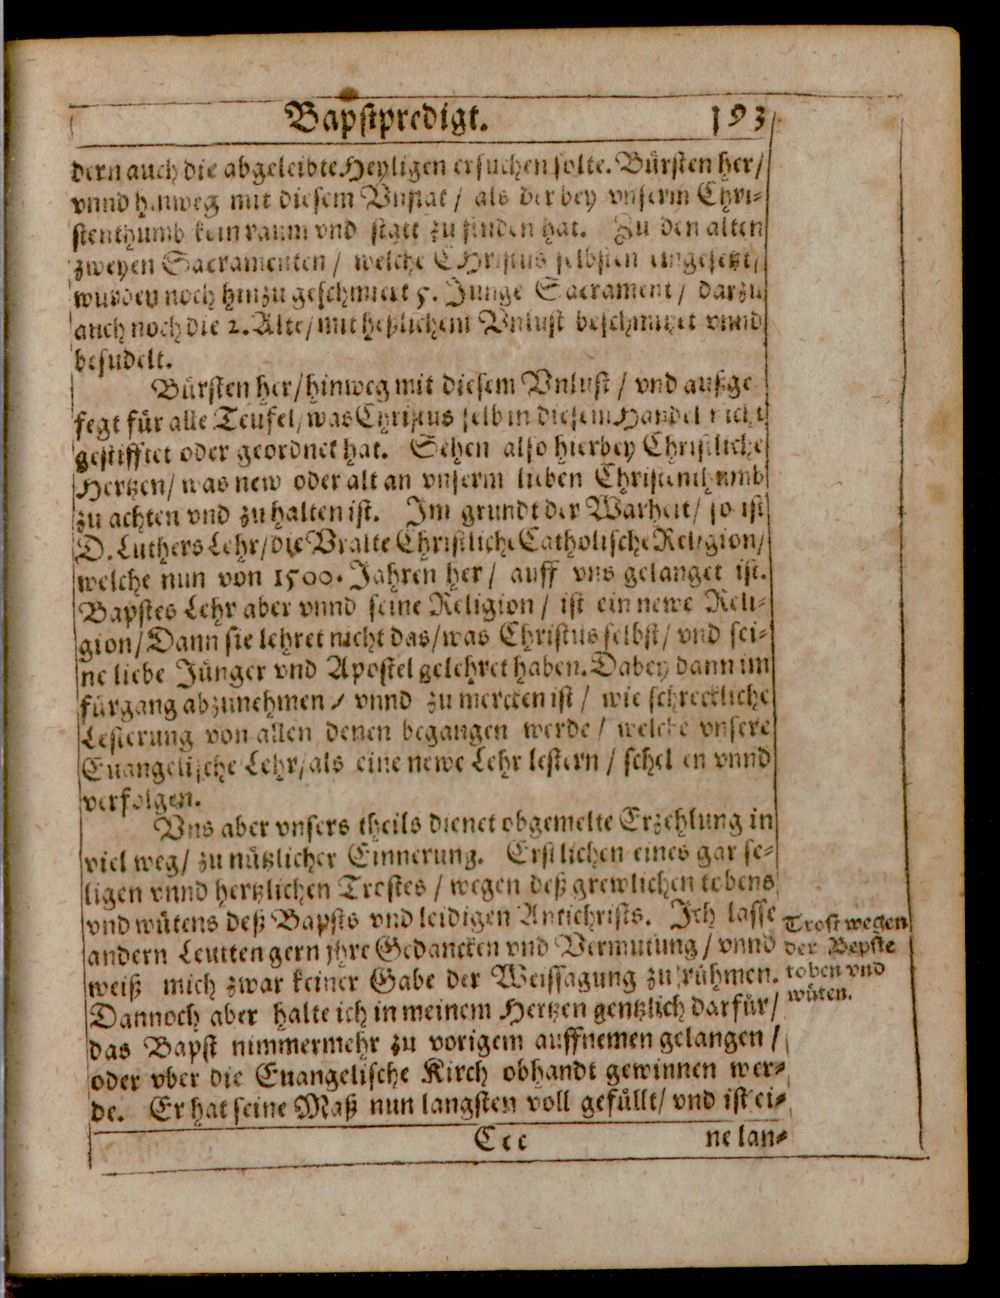 Bapstpredigt. 193
dern auch die abgeleibte Heyligen ersuchen solte. Bürsten her/
vnnd hinweg mit diesem Vnflat / als der bey vnserm Chri-
stenthumb kein raum vnd statt zu finden hat. Zu den alten
zweyen Sacramenten / welche CHristus selbsten eingesetzt/
wurden noch hinzu geschmiert 5. Junge Sacrament / darzu
auch noch die 2. Alte/ mit heßlichem Vnlust beschmitzet vnnd
besudelt.
Bürsten her/ hinweg mit diesem Vnlust / vnd außge
fegt für alle Teufel/ was Christus selb in diesem Handel nicht
gestifftet oder geordnet hat. Sehen also hierbey Christliche
Hertzen/ was new oder alt an vnserm lieben Christenthumb
zu achten vnd zu halten ist. Im grundt der Warheit/ so ist
D. Luthers Lehr/ die Vralte Christliche Catholische Religion/
welche nun von 1500. Jahren her / auff vns gelanget ist.
Bapstes Lehr aber vnnd seine Religion / ist ein newe Reli-
gion/ Dann sie lehret nicht das/ was Christus selbst/ vnd sei-
ne liebe Jünger vnd Apostel gelehret haben. Dabey dann im
fürgang abzunehmen / vnnd zu mercken ist / wie schreckliche
Lesterung von allen denen begangen werde / welche vnsere
Euangelische Lehr/ als eine newe Lehr lestern / schelten vnnd
verfolgen.
Vns aber vnsers theils dienet obgemelte Erzehlung in
viel weg/ zu nützlicher Einnerung. Erstlichen eines gar se-
ligen vnnd hertzlichen Trostes / wegen deß grewlichen tobens
vnd wütens deß Bapsts vnd leidigen Antichrists. Ich lasse
andern Leutten gern jhre Gedancken vnd Vermutung / vnnd
weiß mich zwar keiner Gabe der Weissagung zu rühmen.
Dannoch aber halte ich in meinem Hertzen gentzlich darfür/
das Bapst nimmermehr zu vorigem auffnemen gelangen /
oder vber die Euangelische Kirch obhandt gewinnen wer-
de. Er hat seine Maß nun langsten voll gefüllt/ vnd ist ei-
Trost wegen
der Bepste
toben vnd
wüten.
Ccc ne lan-